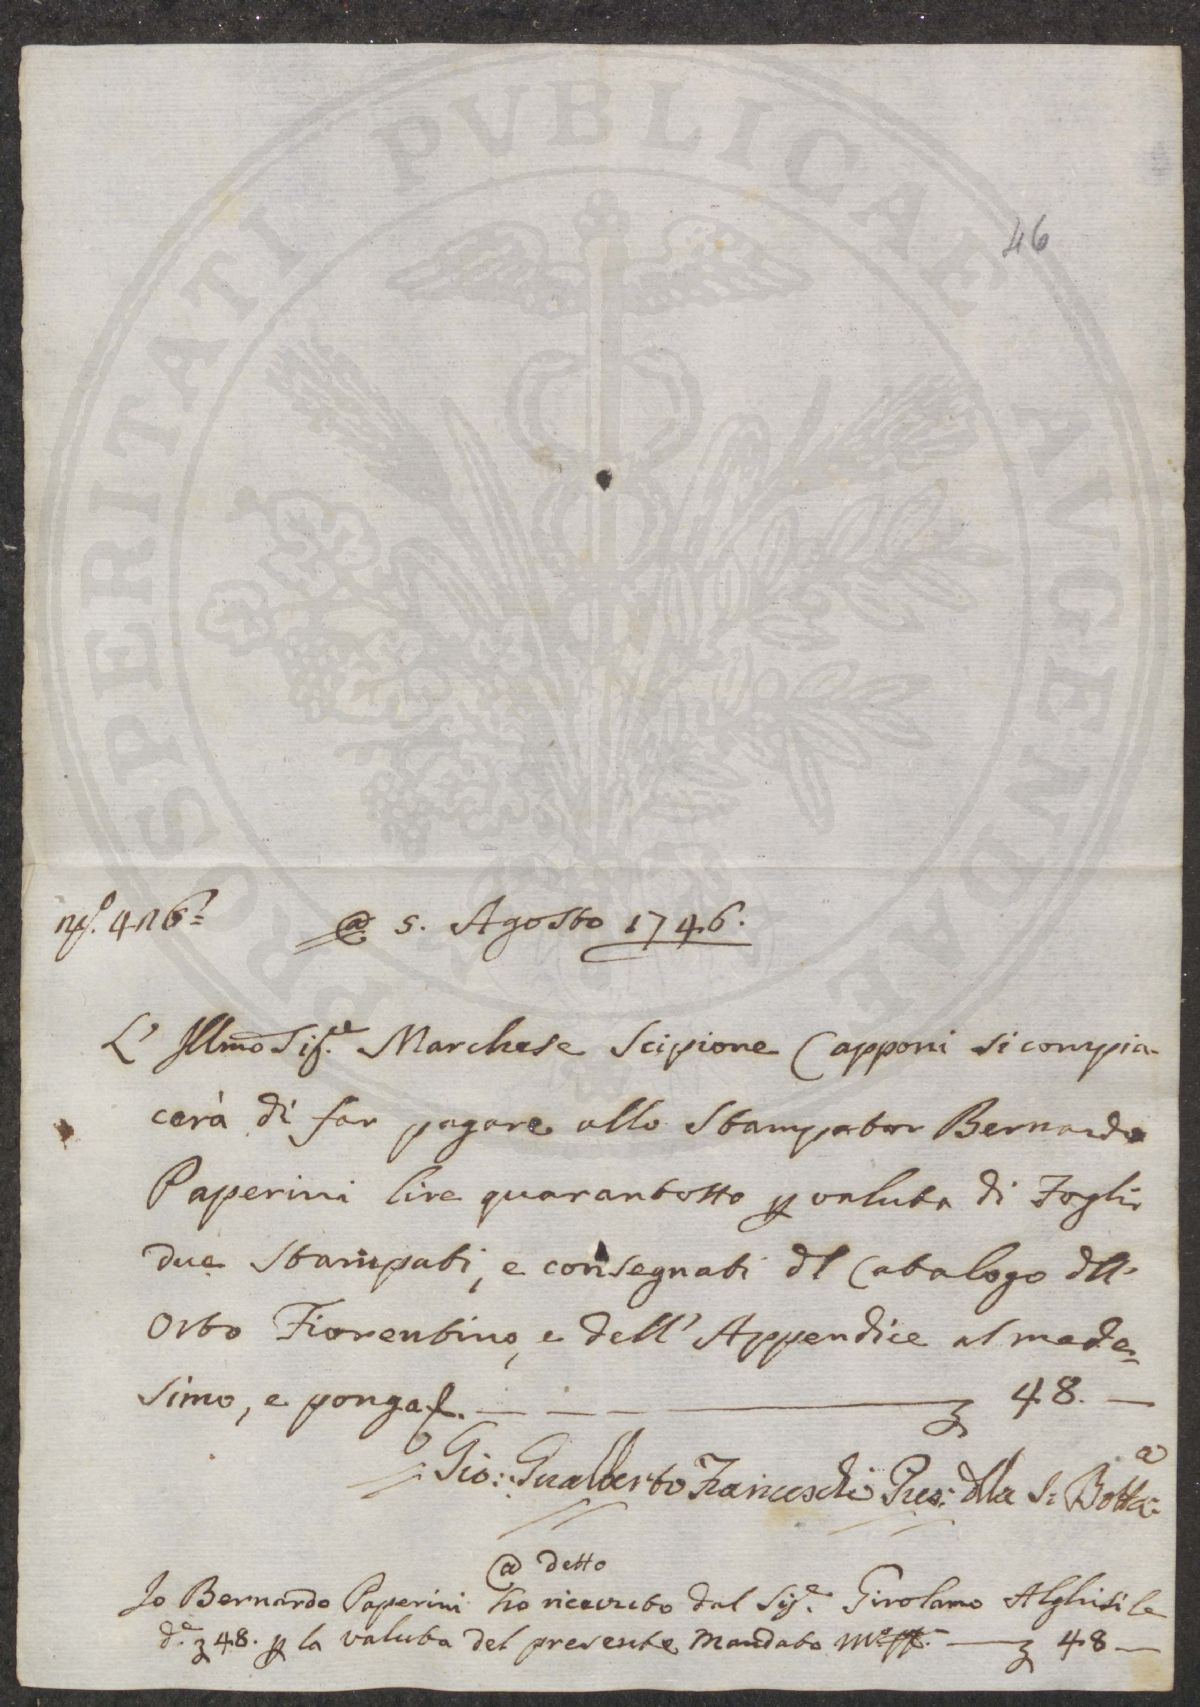 PROSPERITATI PVBLICAE AVGENDAE
46
@ 5. Agosto 1746.
L' Illmo Sig.re Marchese Scipione Capponi si compia-
cerà di far pagare allo Stampator Bernardo
Paperini lire quarantotto p valuta di Fogli
due Stampati, e consegnati dl Catalogo dll'
Orto Fiorentino, e dell' Appendice al mede=
simo, e ponga 48. —
Gio: Gualberto Franceschi Pres: dlla S: Botta:ca
@ detto
Io Bernardo Paperini ho ricevuto dal Sig.re Girolamo Alghisi le
d.e 48. p la valuta del presente Mandato — 48 —